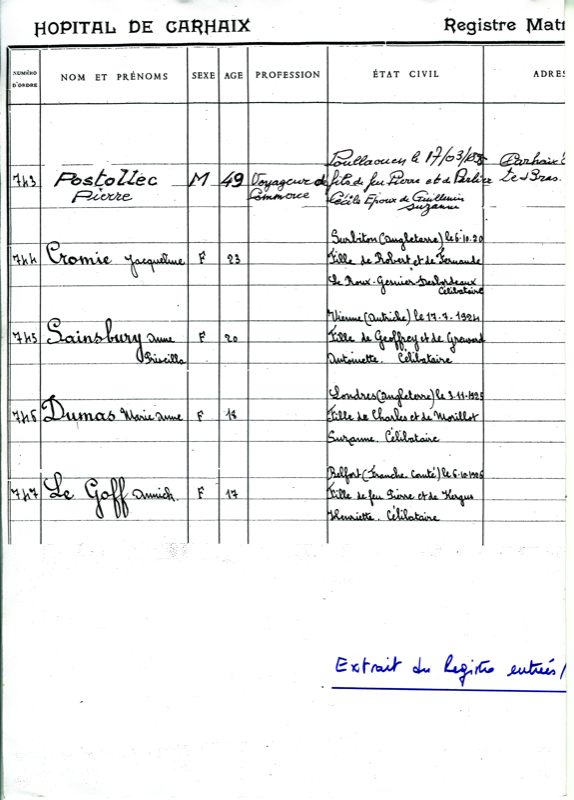 HOPITAL DE CARHAIX
Registre Matr
NUMÉRO D'ORDRE NOM ET PRÉNOMS SEXE AGE PROFESSION ÉTAT CIVIL ADRES
Poullaouen le 17/03/ Carhaix
743 Postollec M 49 Voyageur de fils de feu Pierre et de
Pierre Commerce Cécile Epoux de Guillemin
Suzanne
Surbiton (Angleterre) le 6.10.20
744 Cromie Jacqueline F 23 Fille de Robert et de Fernande
Le Roux-Gernier-Desbordeaux
Célibataire
Vienne (Autriche) le 17.7.1924
745 Sainsbury Anne F 20 Fille de Geoffrey et de
Priscilla Antoinette. Célibataire
Londres (Angleterre) le 3.11.1925
746 Dumas Marie Anne F 18 Fille de Charles et de Morillot
Suzanne. Célibataire
Belfort (Franche Comté) le 6.10.1926
747 Le Goff Annick F 17 Fille de feu Pierre et de Kergus
Henriette. Célibataire
Extrait du Registre entrées/